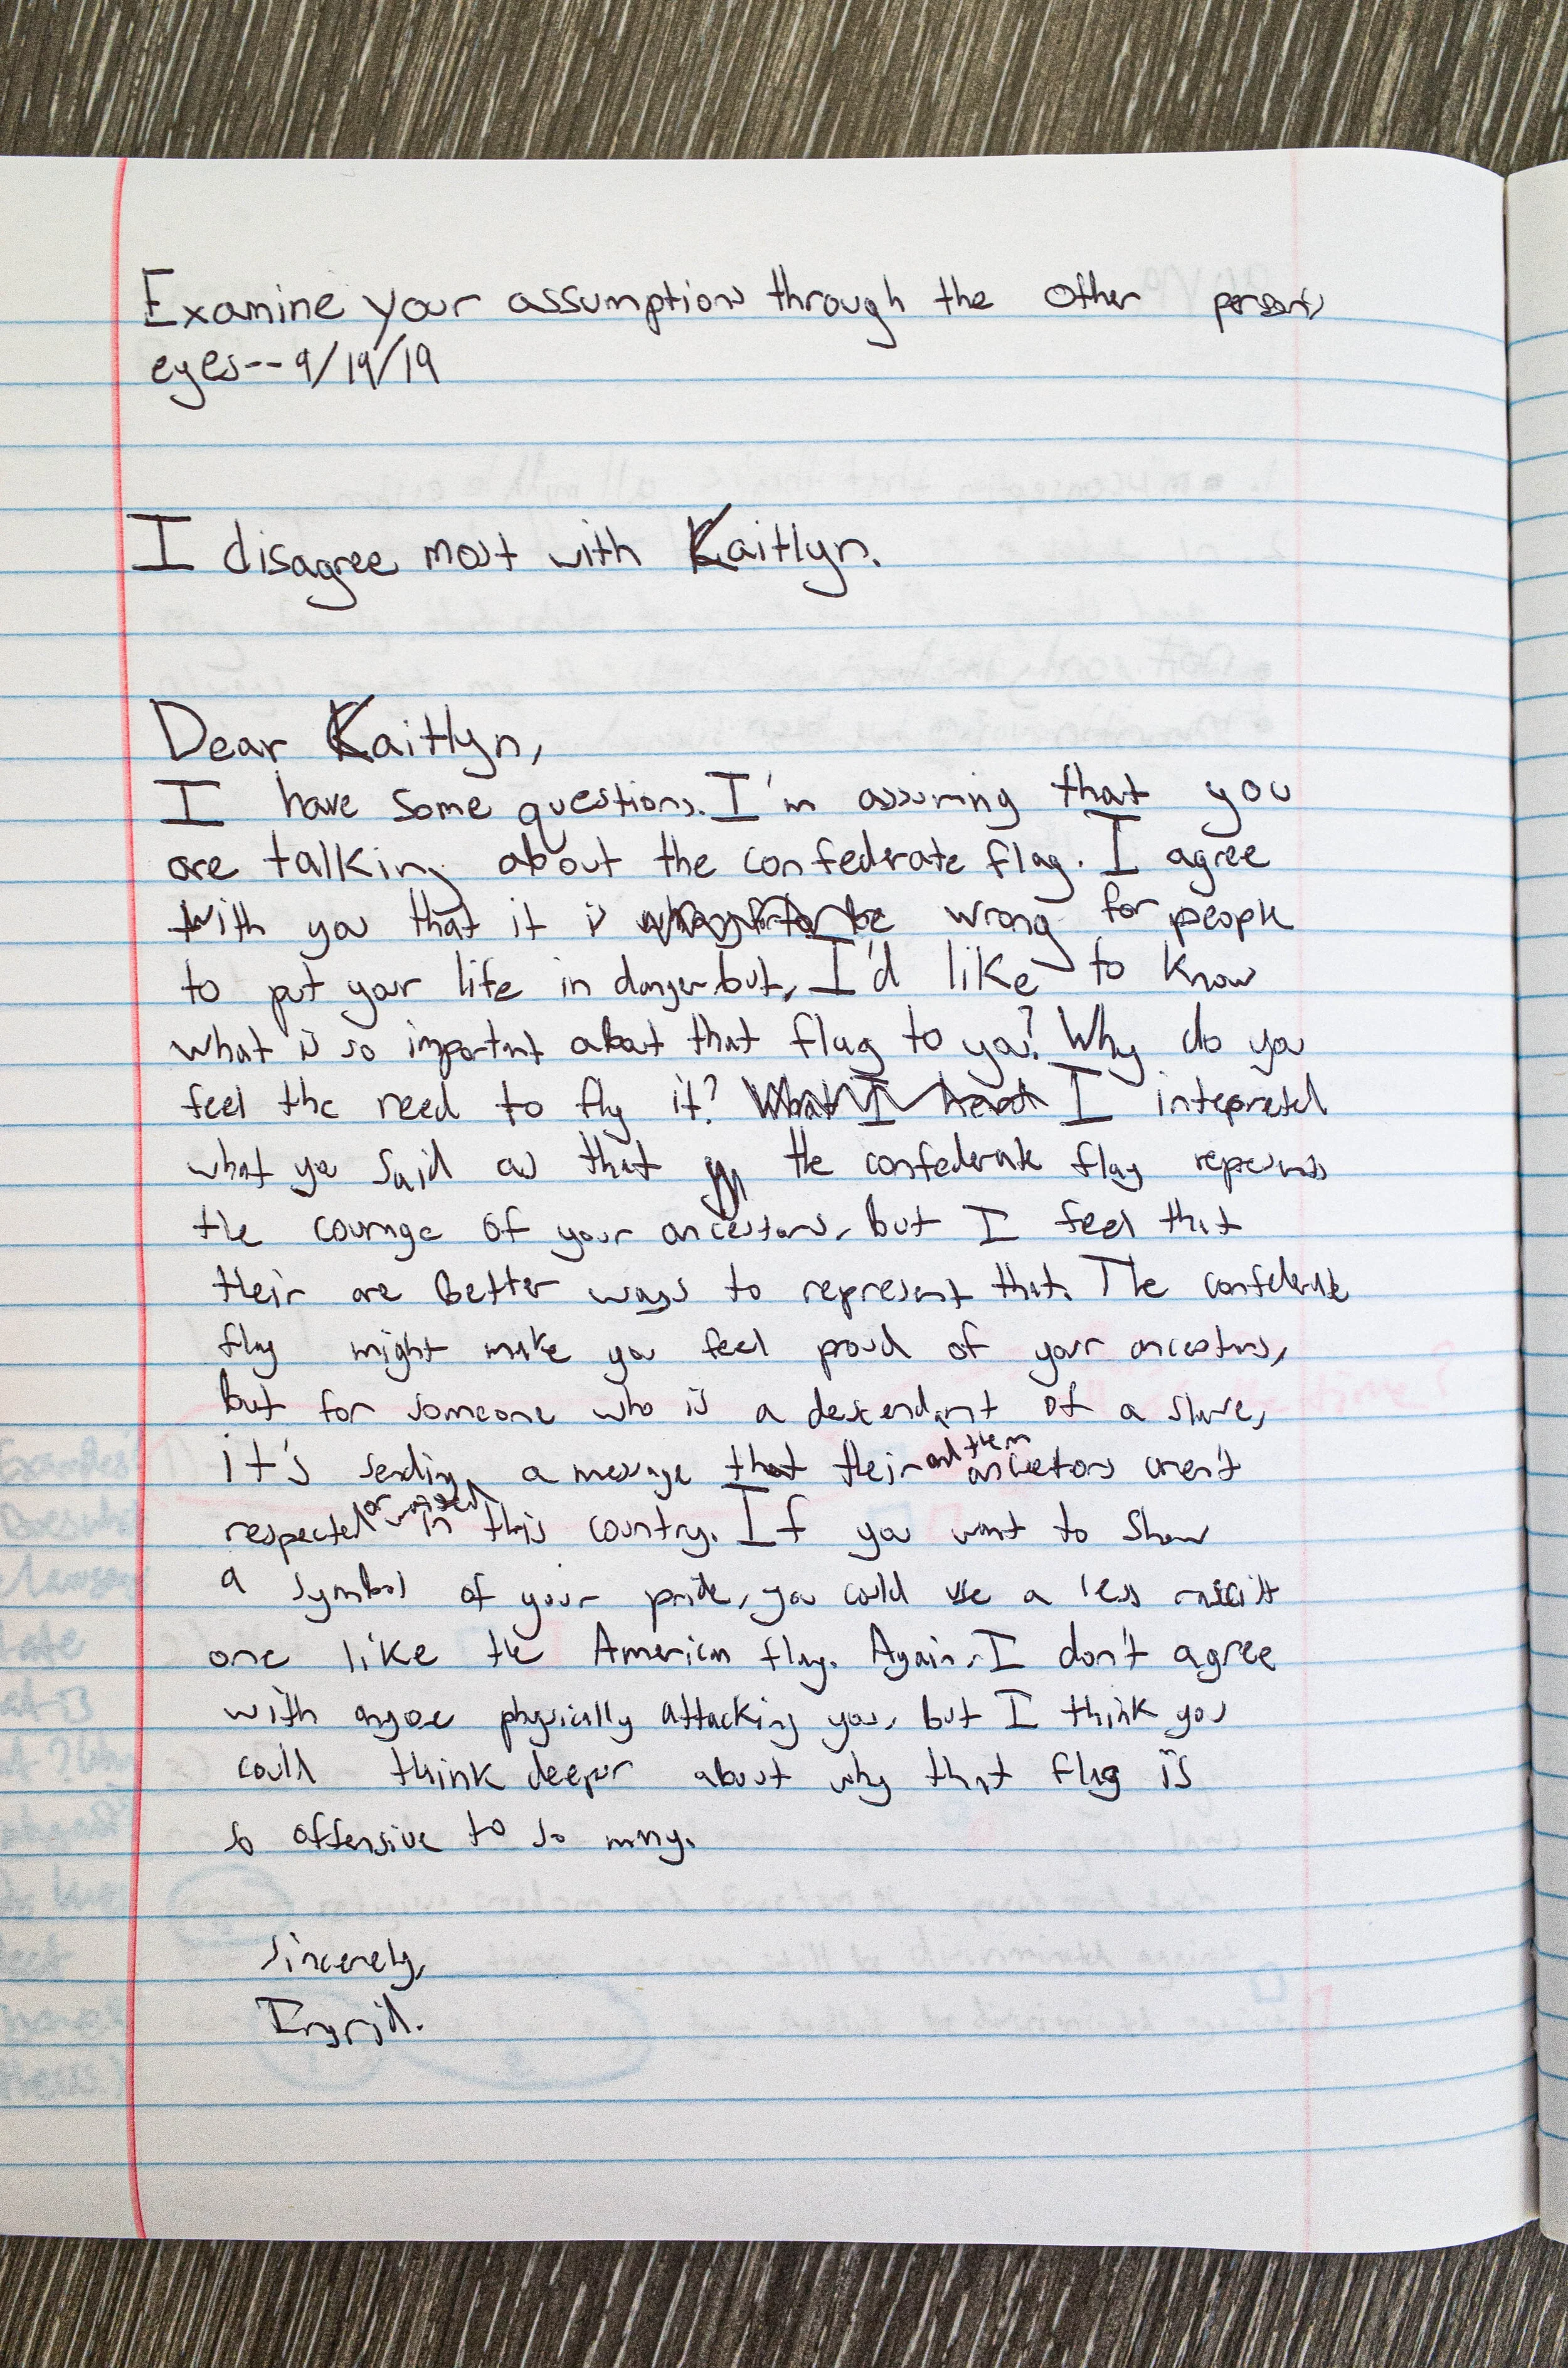 Examine your assumptions through the other person's
eyes--9/19/19
I disagree most with Kaitlyn.
Dear Kaitlyn,
I have some questions. I'm assuming that you
are talking about the confederate flag. I agree
with you that it is wrong for people
to put your life in danger but, I'd like to know
what is so important about that flag to you? Why do you
feel the need to fly it? I intepreted
what you said as that the confederate flag represents
the courage of your ancestors, but I feel that
their are better ways to represent that. The confederate
flag might make you feel proud of your ancestors,
but for someone who is a descendant of a slave,
it's sending a message that their and them ancestors aren't
respected or in this country. If you want to show
a symbol of your pride, you could use a less racist
one like the American flag. Again, I don't agree
with anyone physically attacking you, but I think you
could think deeper about why that flag is
so offensive to so many.
Sincerely,
Ingrid.